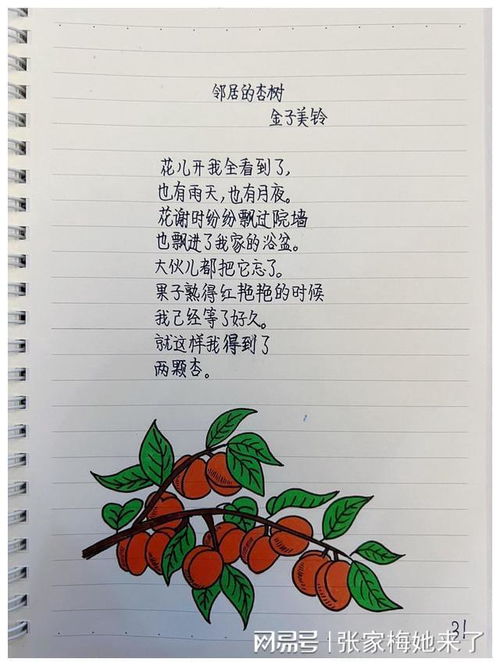 邻居的杏树
金子美铃
花儿开我全看到了,
也有雨天,也有月夜。
花谢时纷纷飘过院墙
也飘进了我家的浴盆。
大伙儿都把它忘了。
果子熟得红艳艳的时候
我已经等了好久。
就这样我得到了
两颗杏。
31
网易号 | 张家梅她来了